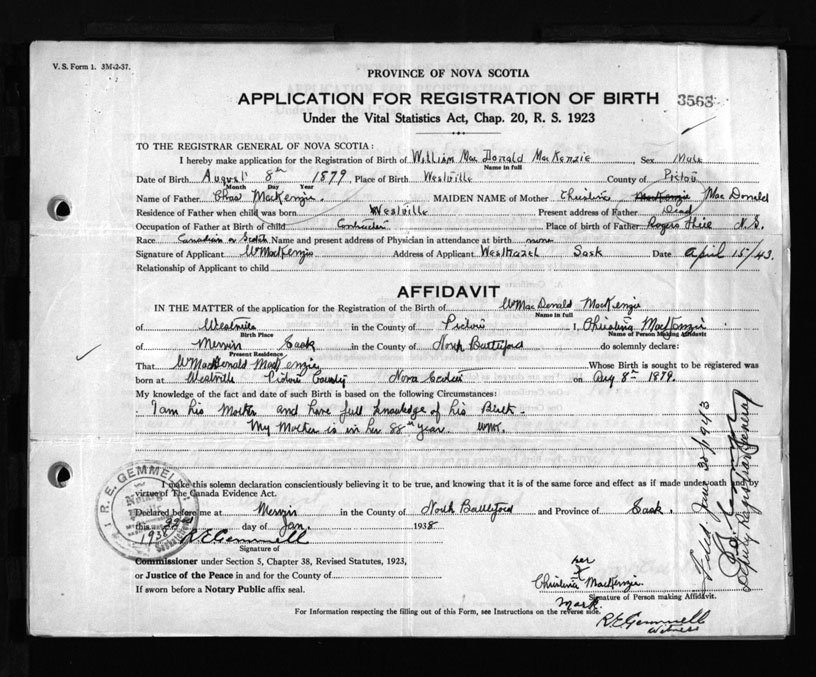 V. S. Form 1. 3M-2-37.
PROVINCE OF NOVA SCOTIA
APPLICATION FOR REGISTRATION OF BIRTH 3563
Under the Vital Statistics Act, Chap. 20, R. S. 1923
TO THE REGISTRAR GENERAL OF NOVA SCOTIA:
I hereby make application for the Registration of Birth of William Mac Donald MacKenzie Sex Male
Name in full
Date of Birth August 8th 1879, Place of Birth Westville County of Pictou
Month Day Year
Name of Father Chas MacKenzie. MAIDEN NAME of Mother Christine MacKenzie Mac Donald
Residence of Father when child was born Westville Present address of Father Dead
Occupation of Father at Birth of child Contractor Place of birth of Father Rogers Hill N.S.
Race Canadian or Scotch Name and present address of Physician in attendance at birth none
Signature of Applicant W MacKenzie Address of Applicant Westhazel Sask Date April 15/43.
Relationship of Applicant to child
AFFIDAVIT
IN THE MATTER of the application for the Registration of the Birth of W Mac Donald MacKenzie
Name in full
of Westville in the County of Pictou I, Christina MacKenzie
Birth Place Name of Person Making Affidavit
of Mervin Sask in the County of North Battleford do solemnly declare:
Present Residence
That W MacDonald MacKenzie Whose Birth is sought to be registered was
born at Westville Pictou County Nova Scotia on Aug 8th 1879.
My knowledge of the fact and date of such Birth is based on the following Circumstances:
I am his Mother and have full knowledge of his Birth.
My Mother is in her 88th year. WMK.
I make this solemn declaration conscientiously believing it to be true, and knowing that it is of the same force and effect as if made under oath and by
virtue of The Canada Evidence Act.
Declared before me at Mervin in the County of North Battleford and Province of Sask.
this 22nd day of Jan. 1938
1938 R E Gemmell
Signature of
Commissioner under Section 5, Chapter 38, Revised Statutes, 1923,
or Justice of the Peace in and for the County of
If sworn before a Notary Public affix seal.
her
X
Christina MacKenzie
Signature of Person making Affidavit.
Mark.
For Information respecting the filling out of this Form, see Instructions on the reverse side.
R.E. Gemmell
Witness
R. E. GEMMELL
Notary
Saskatchewan
1943
Deputy Registrar General